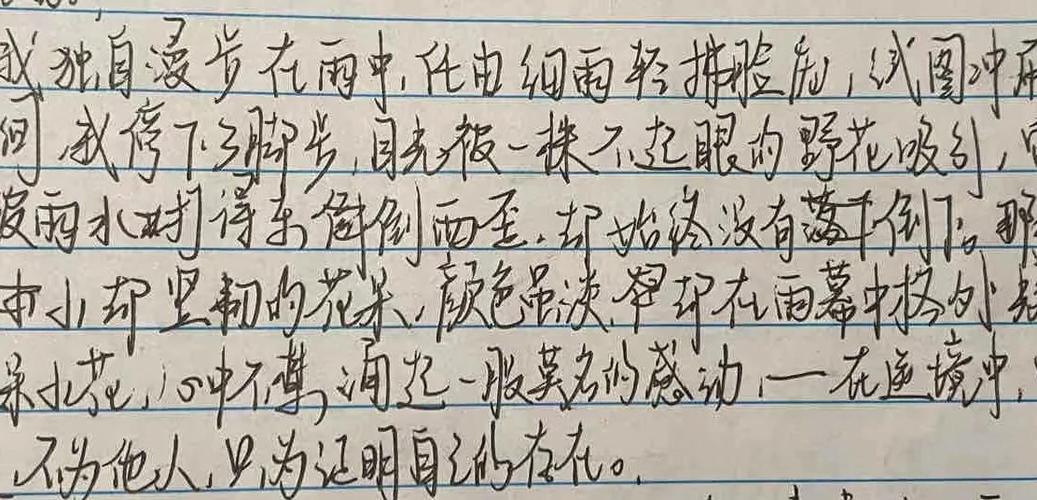 我独自漫步在雨中,任由细雨轻拂脸庞,试图冲刷
间,我停下了脚步,目光被一株不起眼的野花吸引,它
被雨水打得东倒西歪,却始终没有倒下。那
小却坚韧的花朵,颜色虽淡,却在雨幕中格外
朵小花,心中不禁涌起一股莫名的感动,一在逆境中,
,不为他人,只为证明自己的存在。